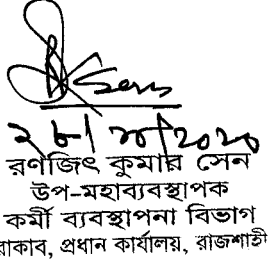 Sen
রণজিৎ কুমার সেন
উপ-মহাব্যবস্থাপক
কর্মী ব্যবস্থাপনা বিভাগ
রাকাব, প্রধান কার্যালয়, রাজশাহী